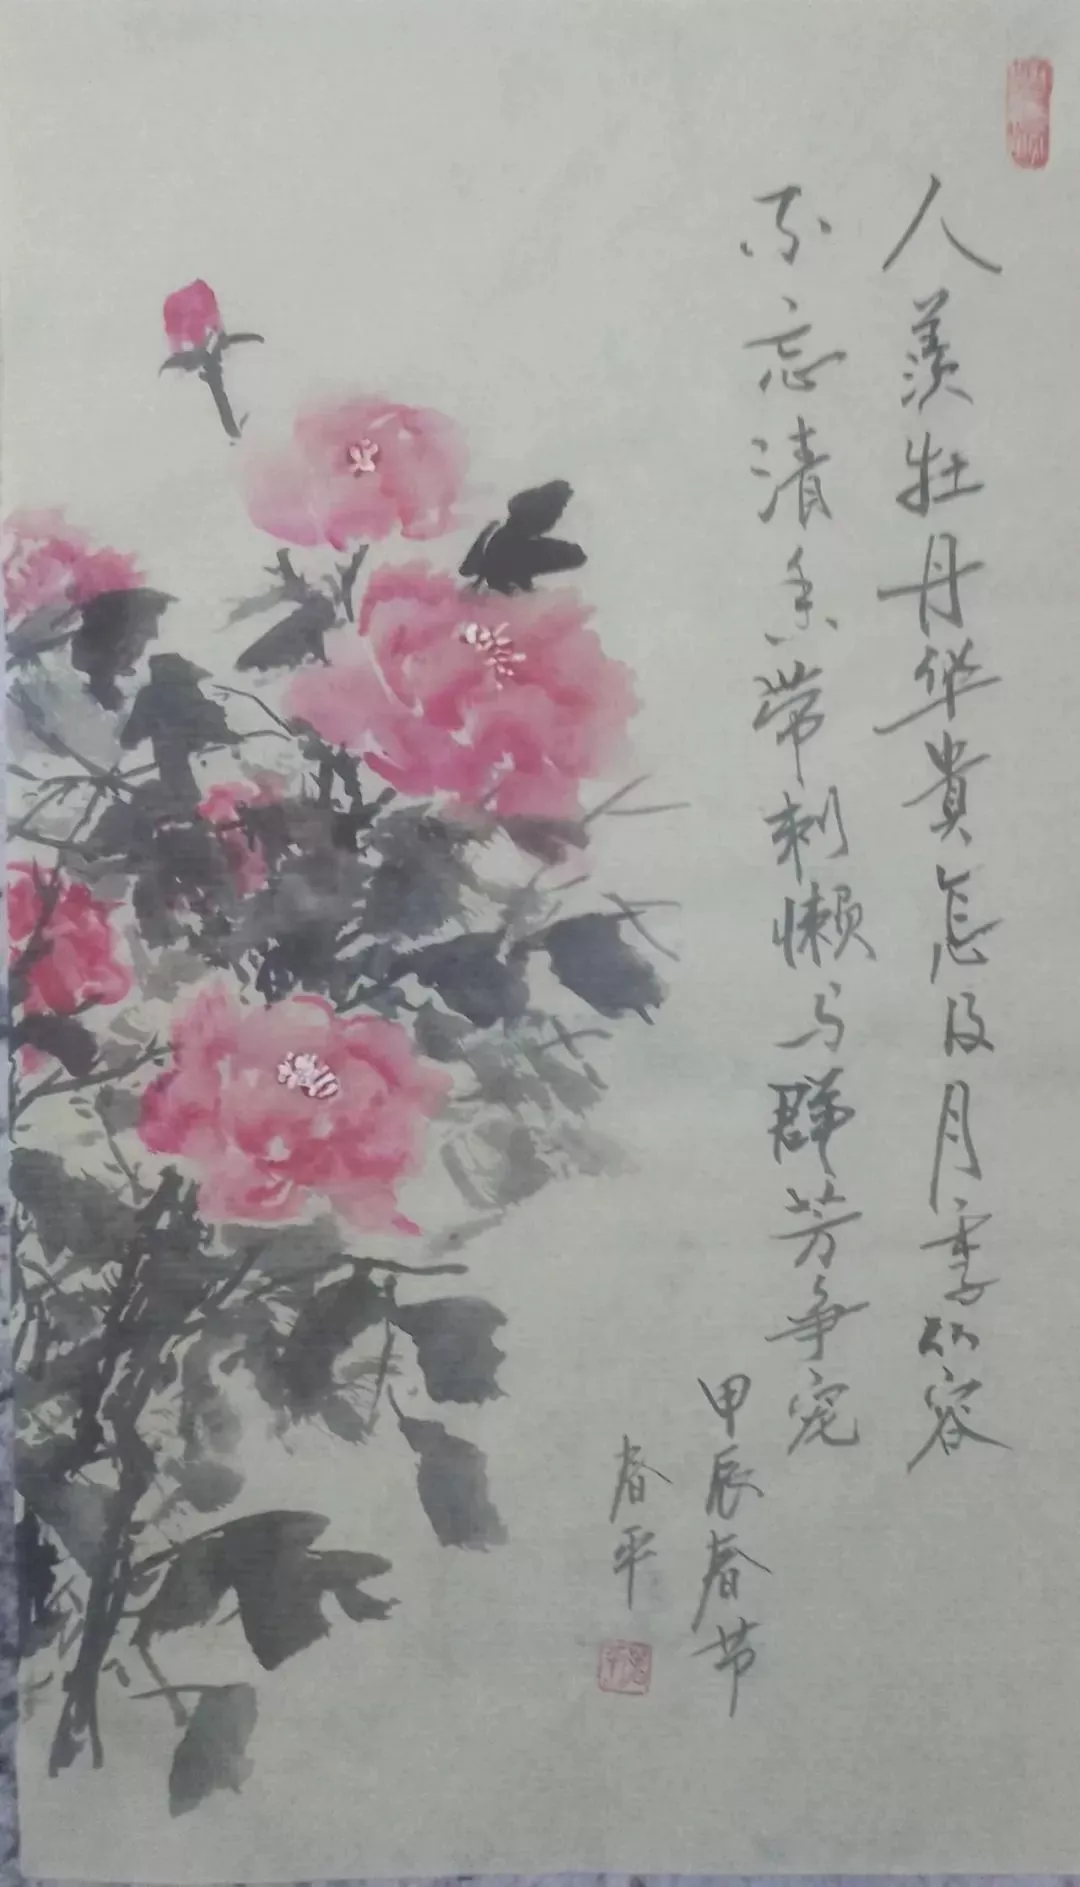 人羡牡丹华貴怎及月季容
不忘清香带刺懒与群芳争宠
甲辰春节
春平